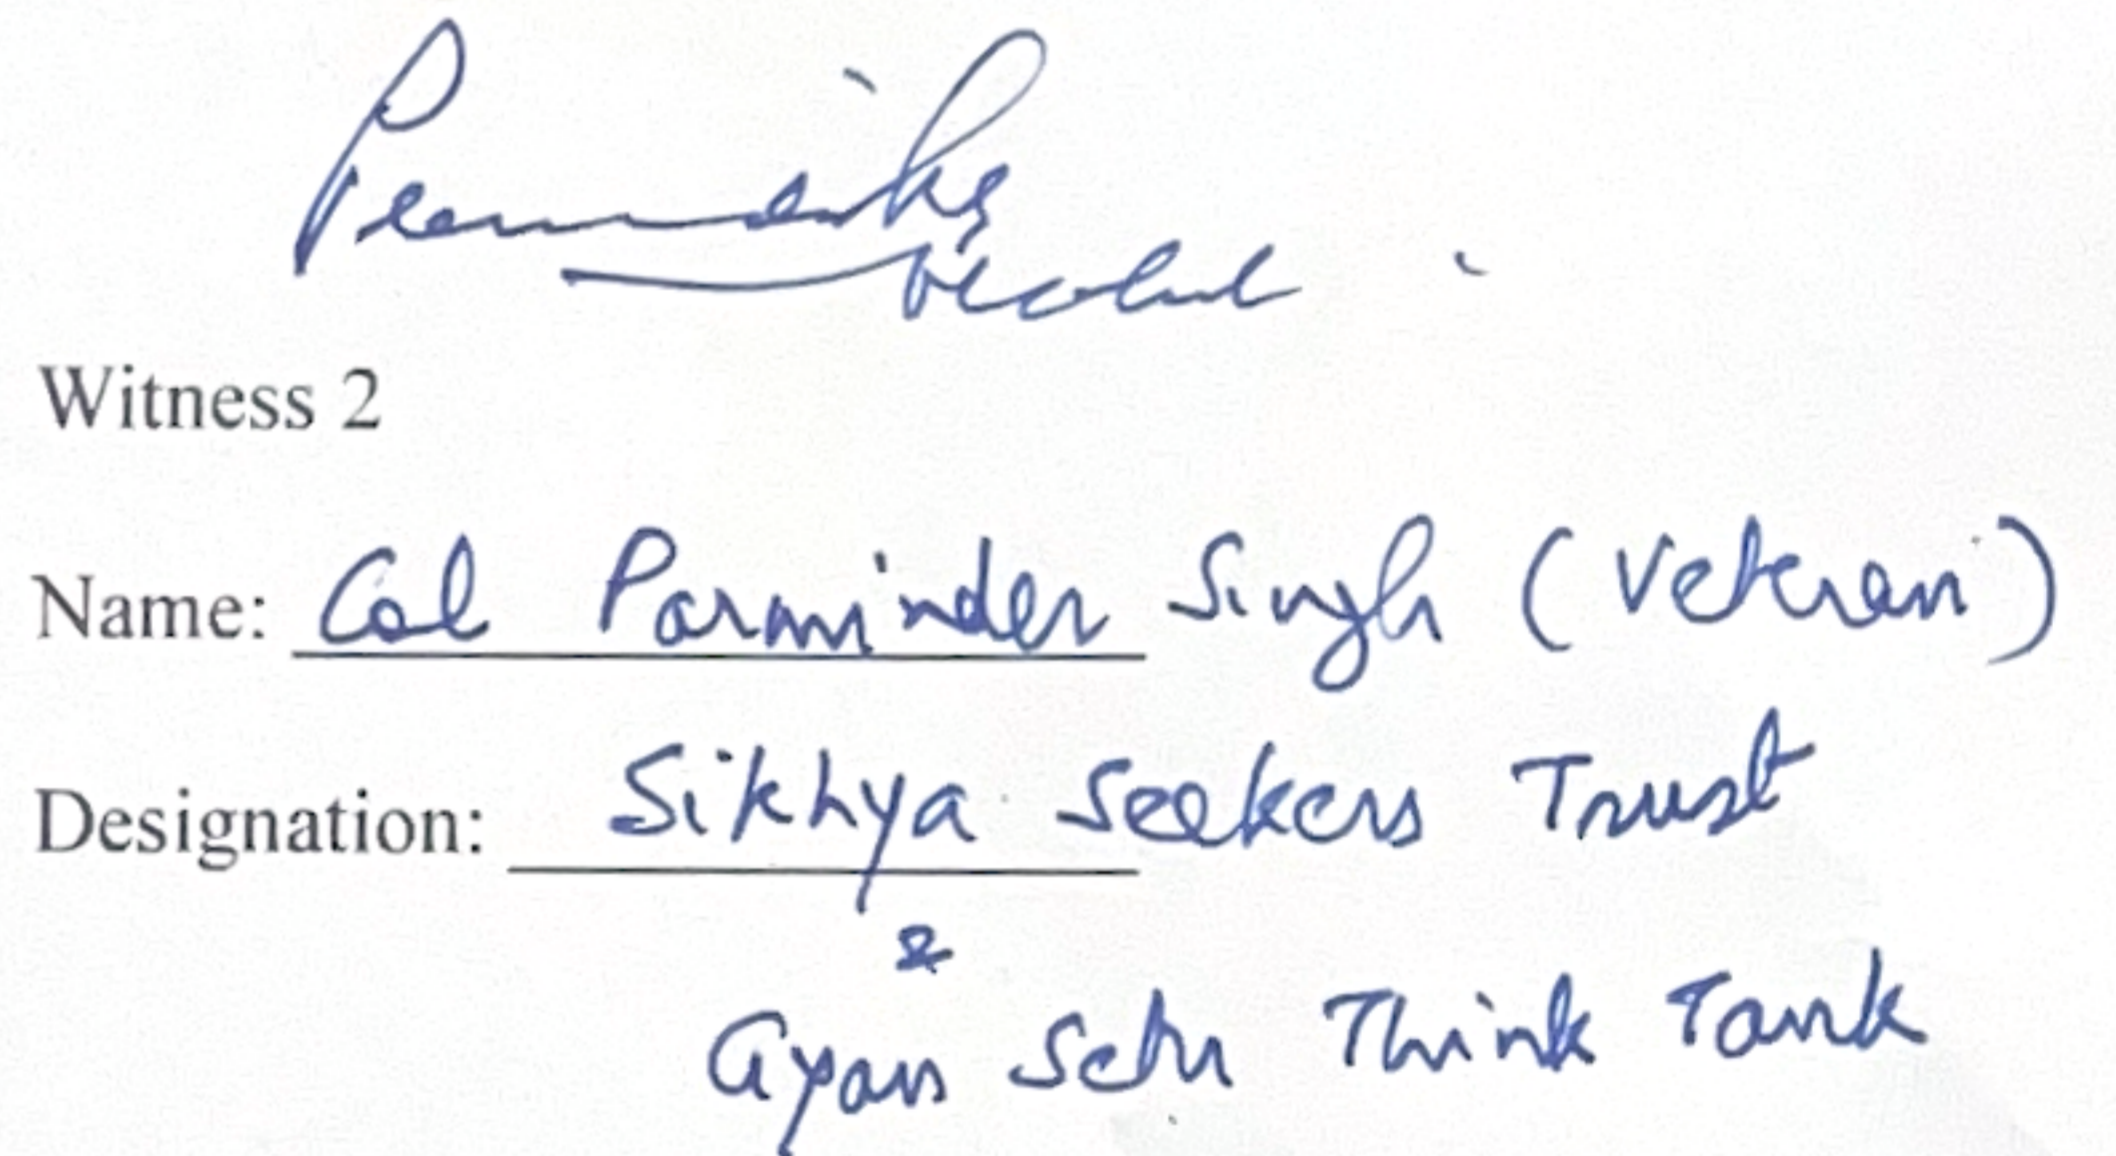 Witness 2
Name: Col Parminder Singh (Veteran)
Designation: Sikhya Seekers Trust
&
Gyan Setu Think Tank